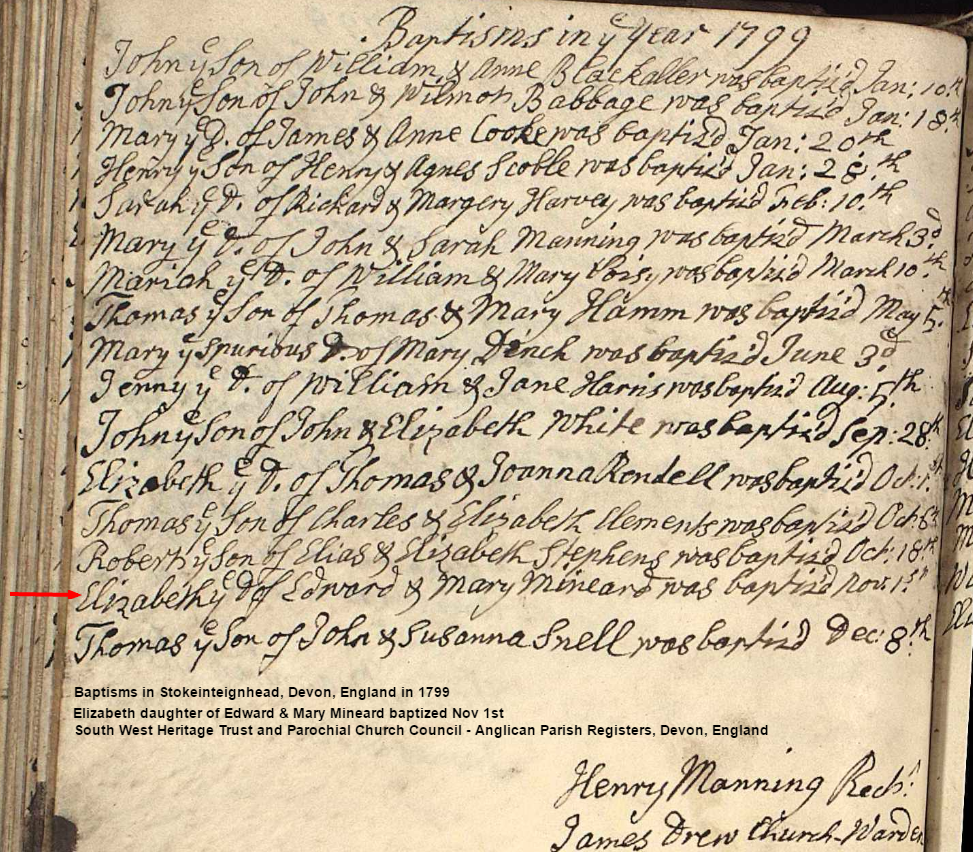 Baptisms in yᵉ Year 1799
John yᵉ Son of William & Anne Blackaller was baptiz'd Jan: 10.th
John yᵉ Son of John & Wilmot Babbage was baptiz'd Jan: 18th
Mary yᵉ D. of James & Anne Cooke was baptiz'd Jan: 20th
Henry yᵉ Son of Henry & Agnes Scoble was baptiz'd Jan: 28.th
Sarah yᵉ D. of Richard & Margery Harvey was baptiz'd Feb: 10.th
Mary yᵉ D. of John & Sarah Manning was baptiz'd March 3.d
Mariah yᵉ D. of William & Mary was baptiz'd March 10.th
Thomas yᵉ Son of Thomas & Mary Hamm was baptiz'd May 5.th
Mary yᵉ spurious D. of Mary Dinch was baptiz'd June 3.d
Jenny yᵉ D. of William & Jane Harris was baptiz'd Aug: 5.th
John yᵉ Son of John & Elizabeth White was baptiz'd Sep: 28.th
Elizabeth yᵉ D. of Thomas & Joanna Rendell was baptiz'd Oct: 1.st
Thomas yᵉ Son of Charles & Elizabeth Clements was baptiz'd Oct: 6th
Robert yᵉ Son of Elias & Elizabeth Stephens was baptiz'd Oct: 18.th
Elizabeth yᵉ D of Edward & Mary Mineard was baptiz'd Nov:
Thomas yᵉ Son of John & Susanna Snell was baptiz'd Dec: 8.th
Baptisms in Stokeinteignhead, Devon, England in 1799
Elizabeth daughter of Edward & Mary Mineard baptized Nov 1st
South West Heritage Trust and Parochial Church Council - Anglican Parish Registers, Devon, England
Henry Manning Rect.r
James Drew Church-Warden